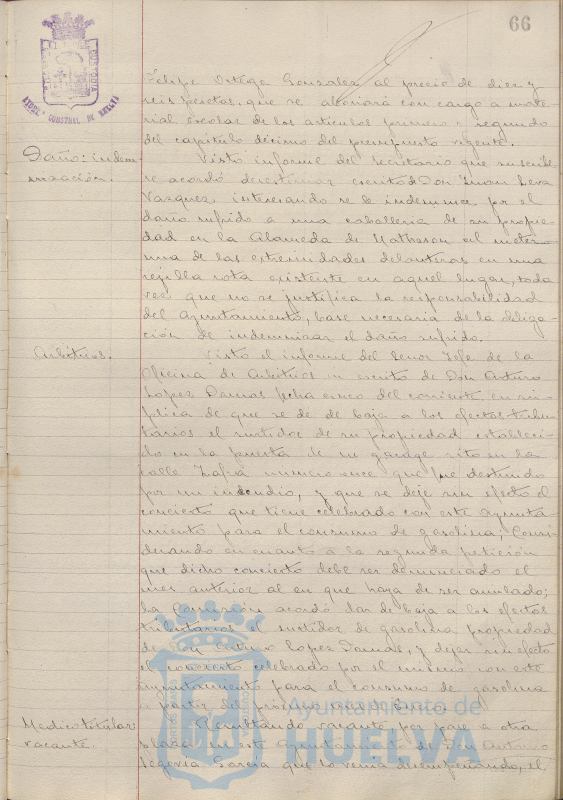 66
Felipe Ortega Gonzalez al precio de diez y
seis pesetas, que se abonará con cargo a mate-
rial escolar de los articulos primero y segundo
del capitulo décimo del presupuesto vigente.
Daño: indem
nización.
Visto informe del Secretario que suscribe
se acordó desestimar escrito de Don Juan
Vazquez interesando se le indemnice por el
daño sufrido a una caballeria de su propie-
dad en la Alameda de Matheson al meter
una de las extremidades delanteras en una
rejilla rota existente en aquel lugar, toda
vez que no se justifica la responsabilidad
del Ayuntamiento, base necesaria de la obliga-
ción de indemnizar el daño sufrido.
Arbitrios.
Visto el informe del Señor Jefe de la
Oficina de Arbitrios en escrito de Don Arturo
Lopez Damas fecha cinco del corriente en sú-
plica de que se dé de baja a los efectos tribu-
tarios el surtidor de su propiedad estableci-
do en la puerta de su garage sito en la
calle Zafra numero once que fué destruido
por un incendio, y que se deje sin efecto el
concierto que tiene celebrado con este Ayunta-
miento para el consumo de gasolina; Consi-
derando en cuanto a la segunda petición
que dicho concierto debe ser denunciado el
mes anterior al en que haya de ser anulado;
la Comisión acordó dar de baja a los efectos
tributarios el surtidor de gasolina propiedad
de Don Arturo Lopez Damas, y dejar sin efecto
el concierto celebrado por el mismo con este
Ayuntamiento para el consumo de gasolina
a partir del próximo mes de
Medico titular
vacante.
Resultando vacante por pase a otra
plaza en este Ayuntamiento de Don Antonio
Segovia Garcia que la venia desempeñando, el
Ayuntamiento de
HUELVA